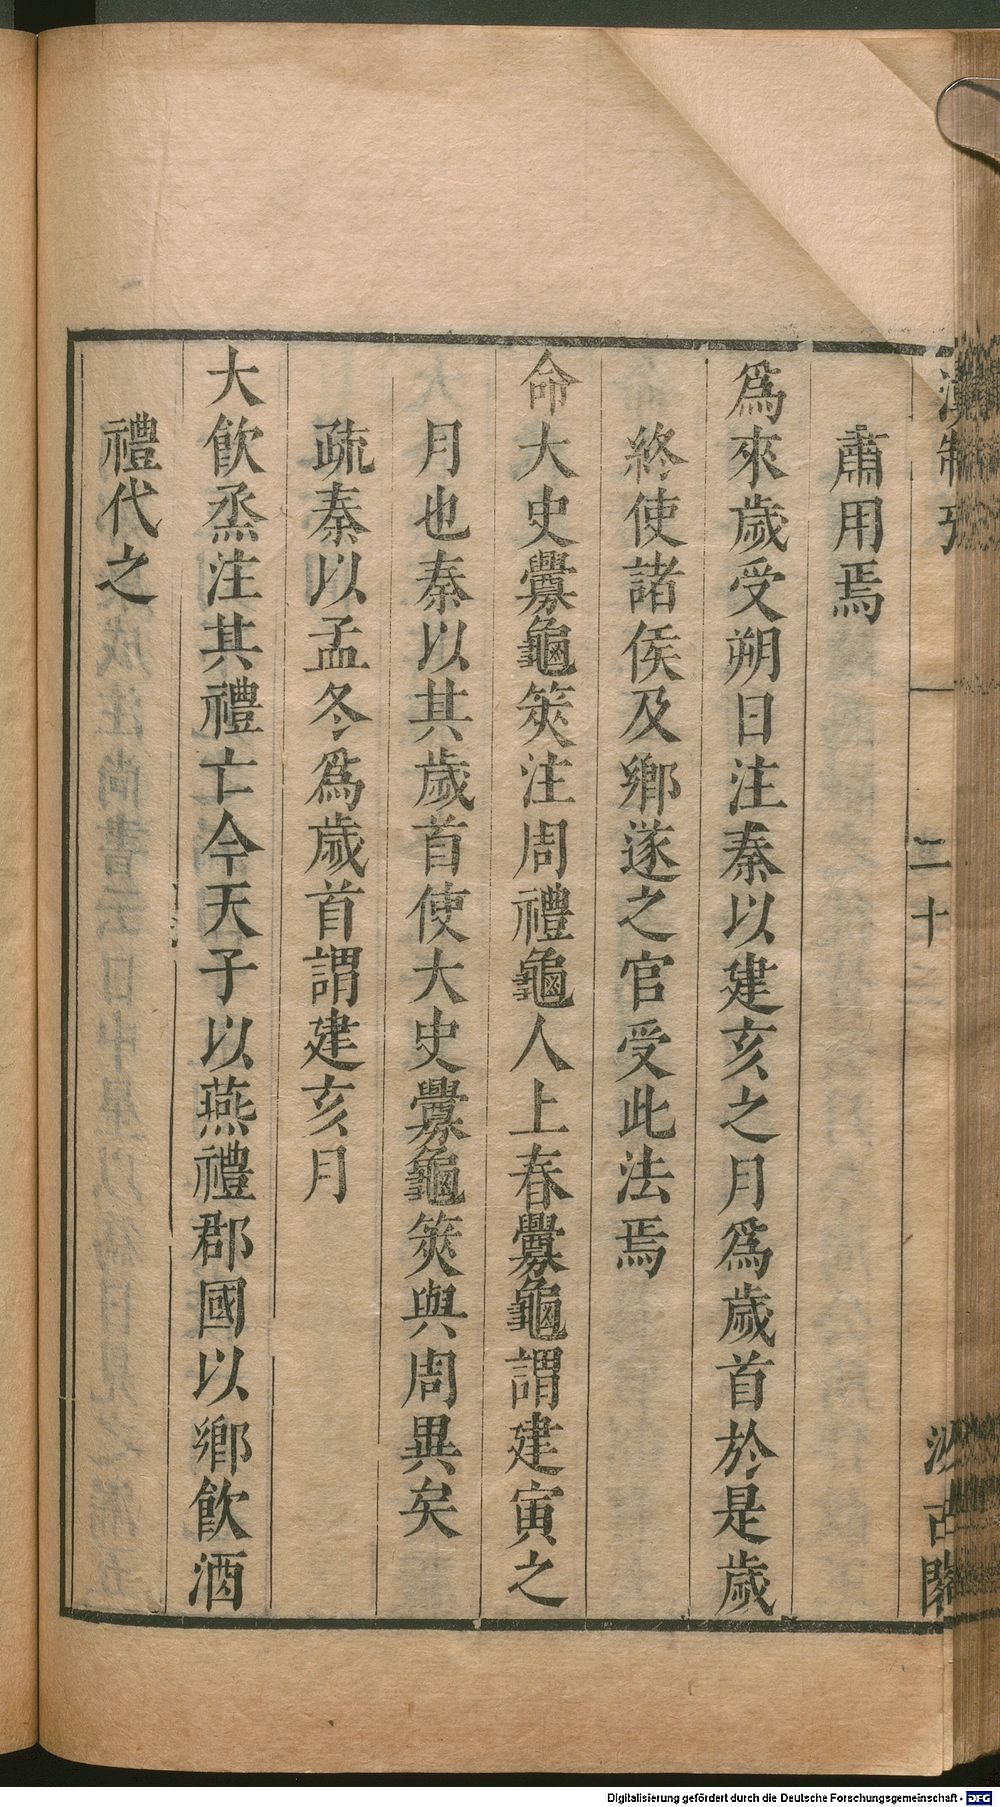 漢制攷
二十
汲古閣
肅用焉
爲來歲受朔日注秦以建亥之月爲歲首於是歲
終使諸侯及鄉遂之官受此法焉
命大史釁龜筴注周禮龜人上春釁龜謂建寅之
月也秦以其歲首使大史釁龜筴與周異矣
疏秦以孟冬爲歲首謂建亥月
大飲烝注其禮亡今天子以燕禮郡國以鄉飲酒
禮代之
Digitalisierung gefördert durch die Deutsche Forschungsgemeinschaft - DFG